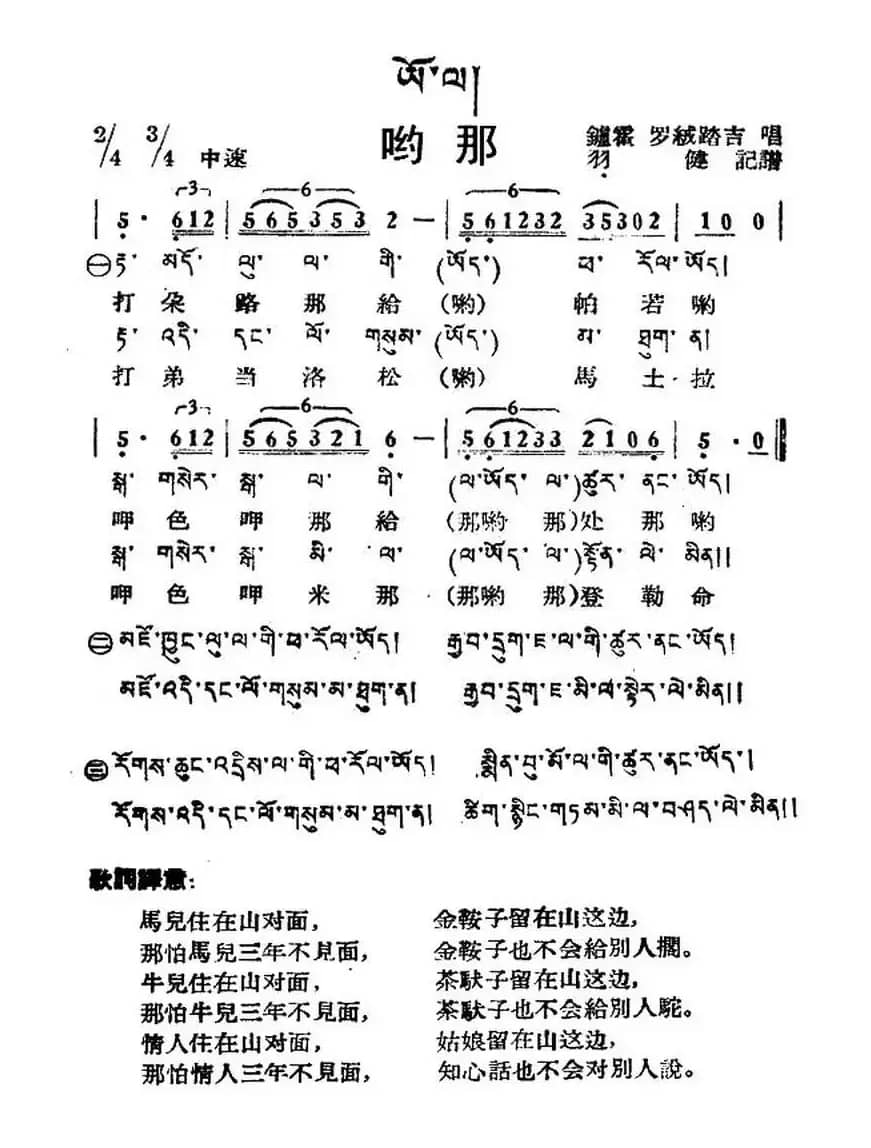 ཨོ་ལ།
哟那
2/4 3/4 中速
鑪霍 罗絨踏吉 唱
羽 健 記譜
3 6 6
5· 612 | 565353 2 — | 561232 35302 | 100 |
㊀ རྟ་ མདོ་ ལུ་ ལ་ གི་ (ཨོད་) ཕ་ རོལ་ ཨོད།
打 朵 路 那 給 (喲) 帕 若 喲
རྟ་ འདི་ དང་ ལོ་ གསུམ་ (ཨོད་) མ་ ཐུག་ ན།
打 弟 当 洛 松 (喲) 馬 土 拉
3 6 6
5· 612 | 565321 6 — | 561233 2106 | 5·0 ‖
སྒ་ གསེར་ སྒ་ ལ་ གི་ (ལ་ཨོད་ ལ་)ཚུར་ ནང་ ཨོད།
呷 色 呷 那 給 (那喲 那)处 那 喲
སྒ་ གསེར་ སྒ་ མི་ ལ་ (ལ་ཨོད་ ལ་)སྟོན་ ལེ་ མིན།།
呷 色 呷 米 那 (那喲 那)登 勒 命
㊁ མཛོ་ཁྱུང་ལུ་ལ་གི་ཕ་རོལ་ཨོད། རྒྱབ་དྲུག་ཇ་ལ་གི་ཚུར་ནང་ཨོད།
མཛོ་འདི་དང་ལོ་གསུམ་མ་ཐུག་ན། རྒྱབ་དྲུག་ཇ་མི་ལ་སྟེར་ལེ་མིན།།
㊂ རོགས་ཆུང་འདྲིས་ལ་གི་ཕ་རོལ་ཨོད། སྨིན་བུ་མོ་ལ་གི་ཚུར་ནང་ཨོད།
རོགས་འདི་དང་ལོ་གསུམ་མ་ཐུག་ན། ཚིག་སྙིང་གཏམ་མི་ལ་བཤད་ལེ་མིན།།
歌詞譯意:
馬兒住在山对面, 金鞍子留在山这边,
那怕馬兒三年不見面, 金鞍子也不会給別人擱。
牛兒住在山对面, 茶馱子留在山这边,
那怕牛兒三年不見面, 茶馱子也不会給別人駝。
情人住在山对面, 姑娘留在山这边,
那怕情人三年不見面, 知心話也不会对別人說。